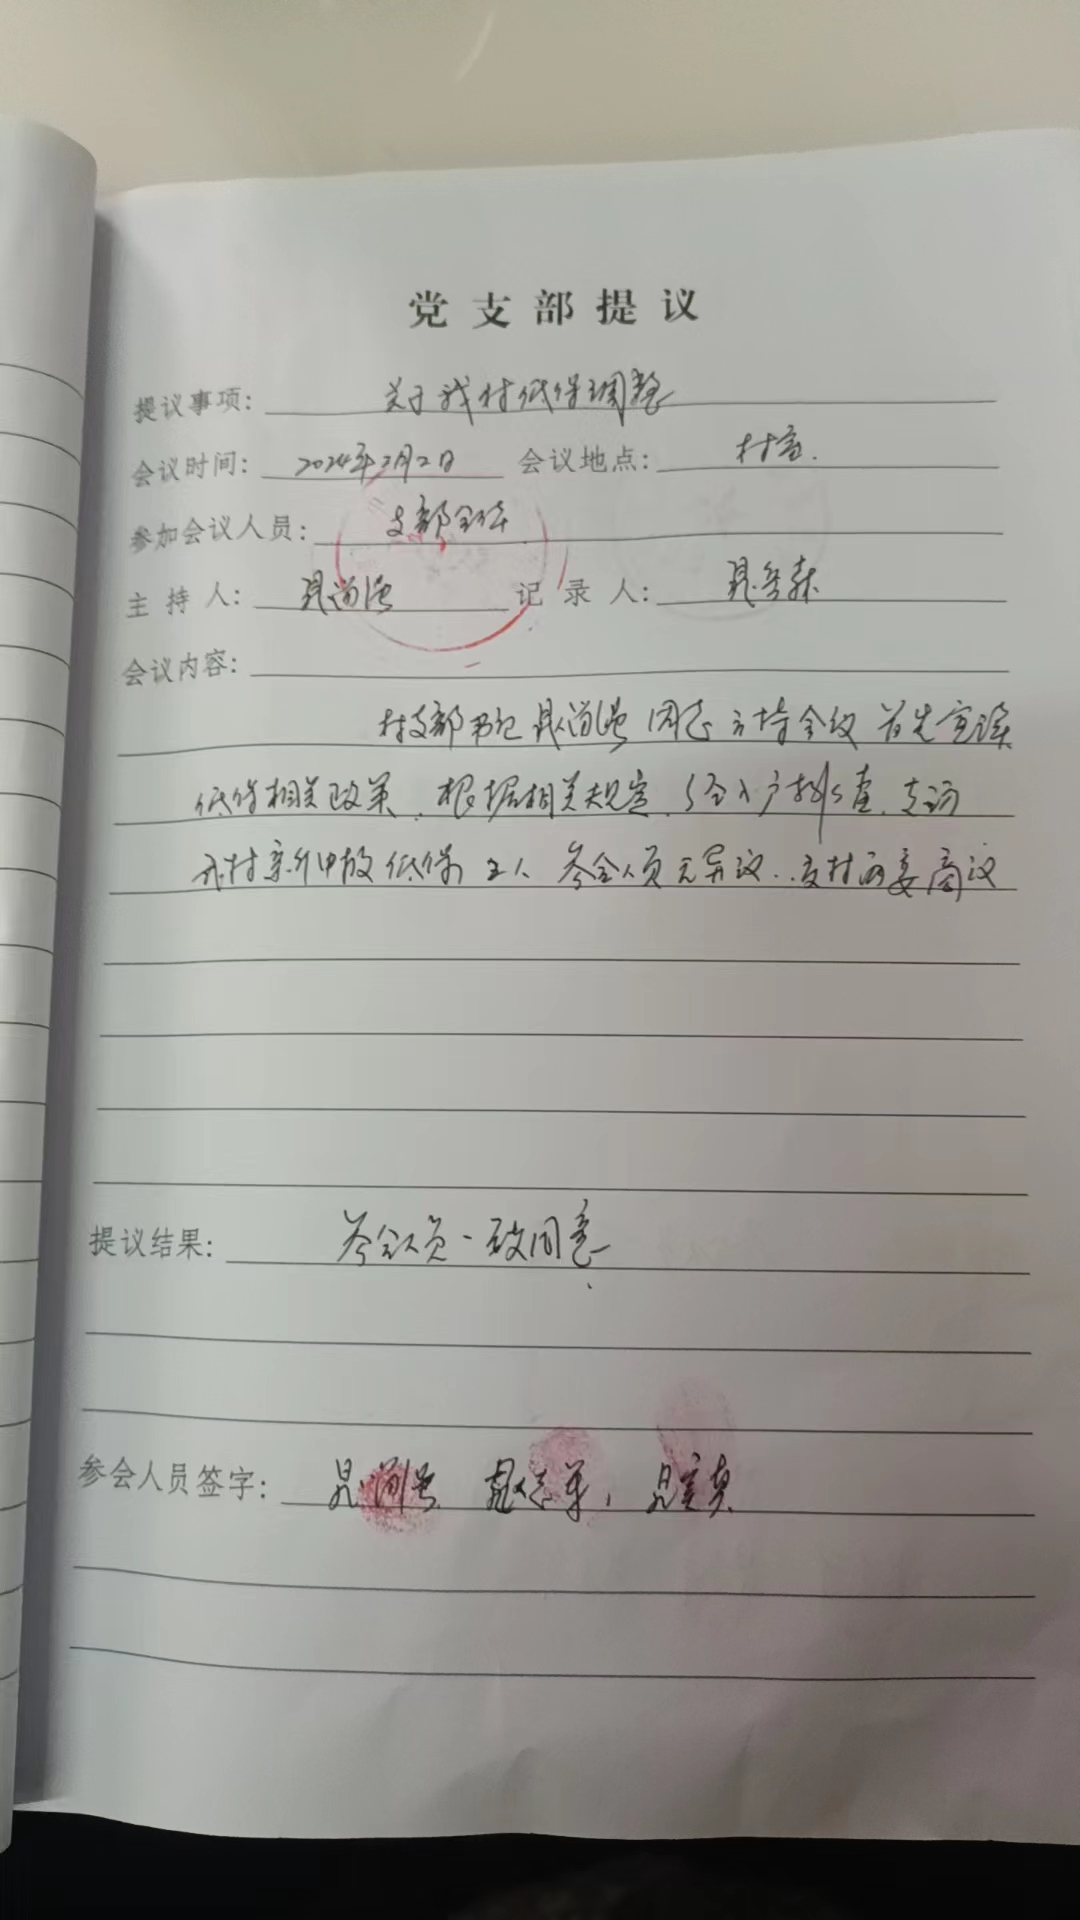 党支部提议
提议事项: 关于我村低保调整
会议时间: 2024年3月2日 会议地点: 村室.
参加会议人员: 支部全体
主持人: 晁 记录人: 晁
会议内容:
村支部书记晁 同志主持会议 首先宣读
低保相关政策. 根据相关规定. 经入户排查. 走访
我村新申 低保 人 参会人员无异议. 交村两委商议
提议结果: 参会人员一致同意
参会人员签字: 晁